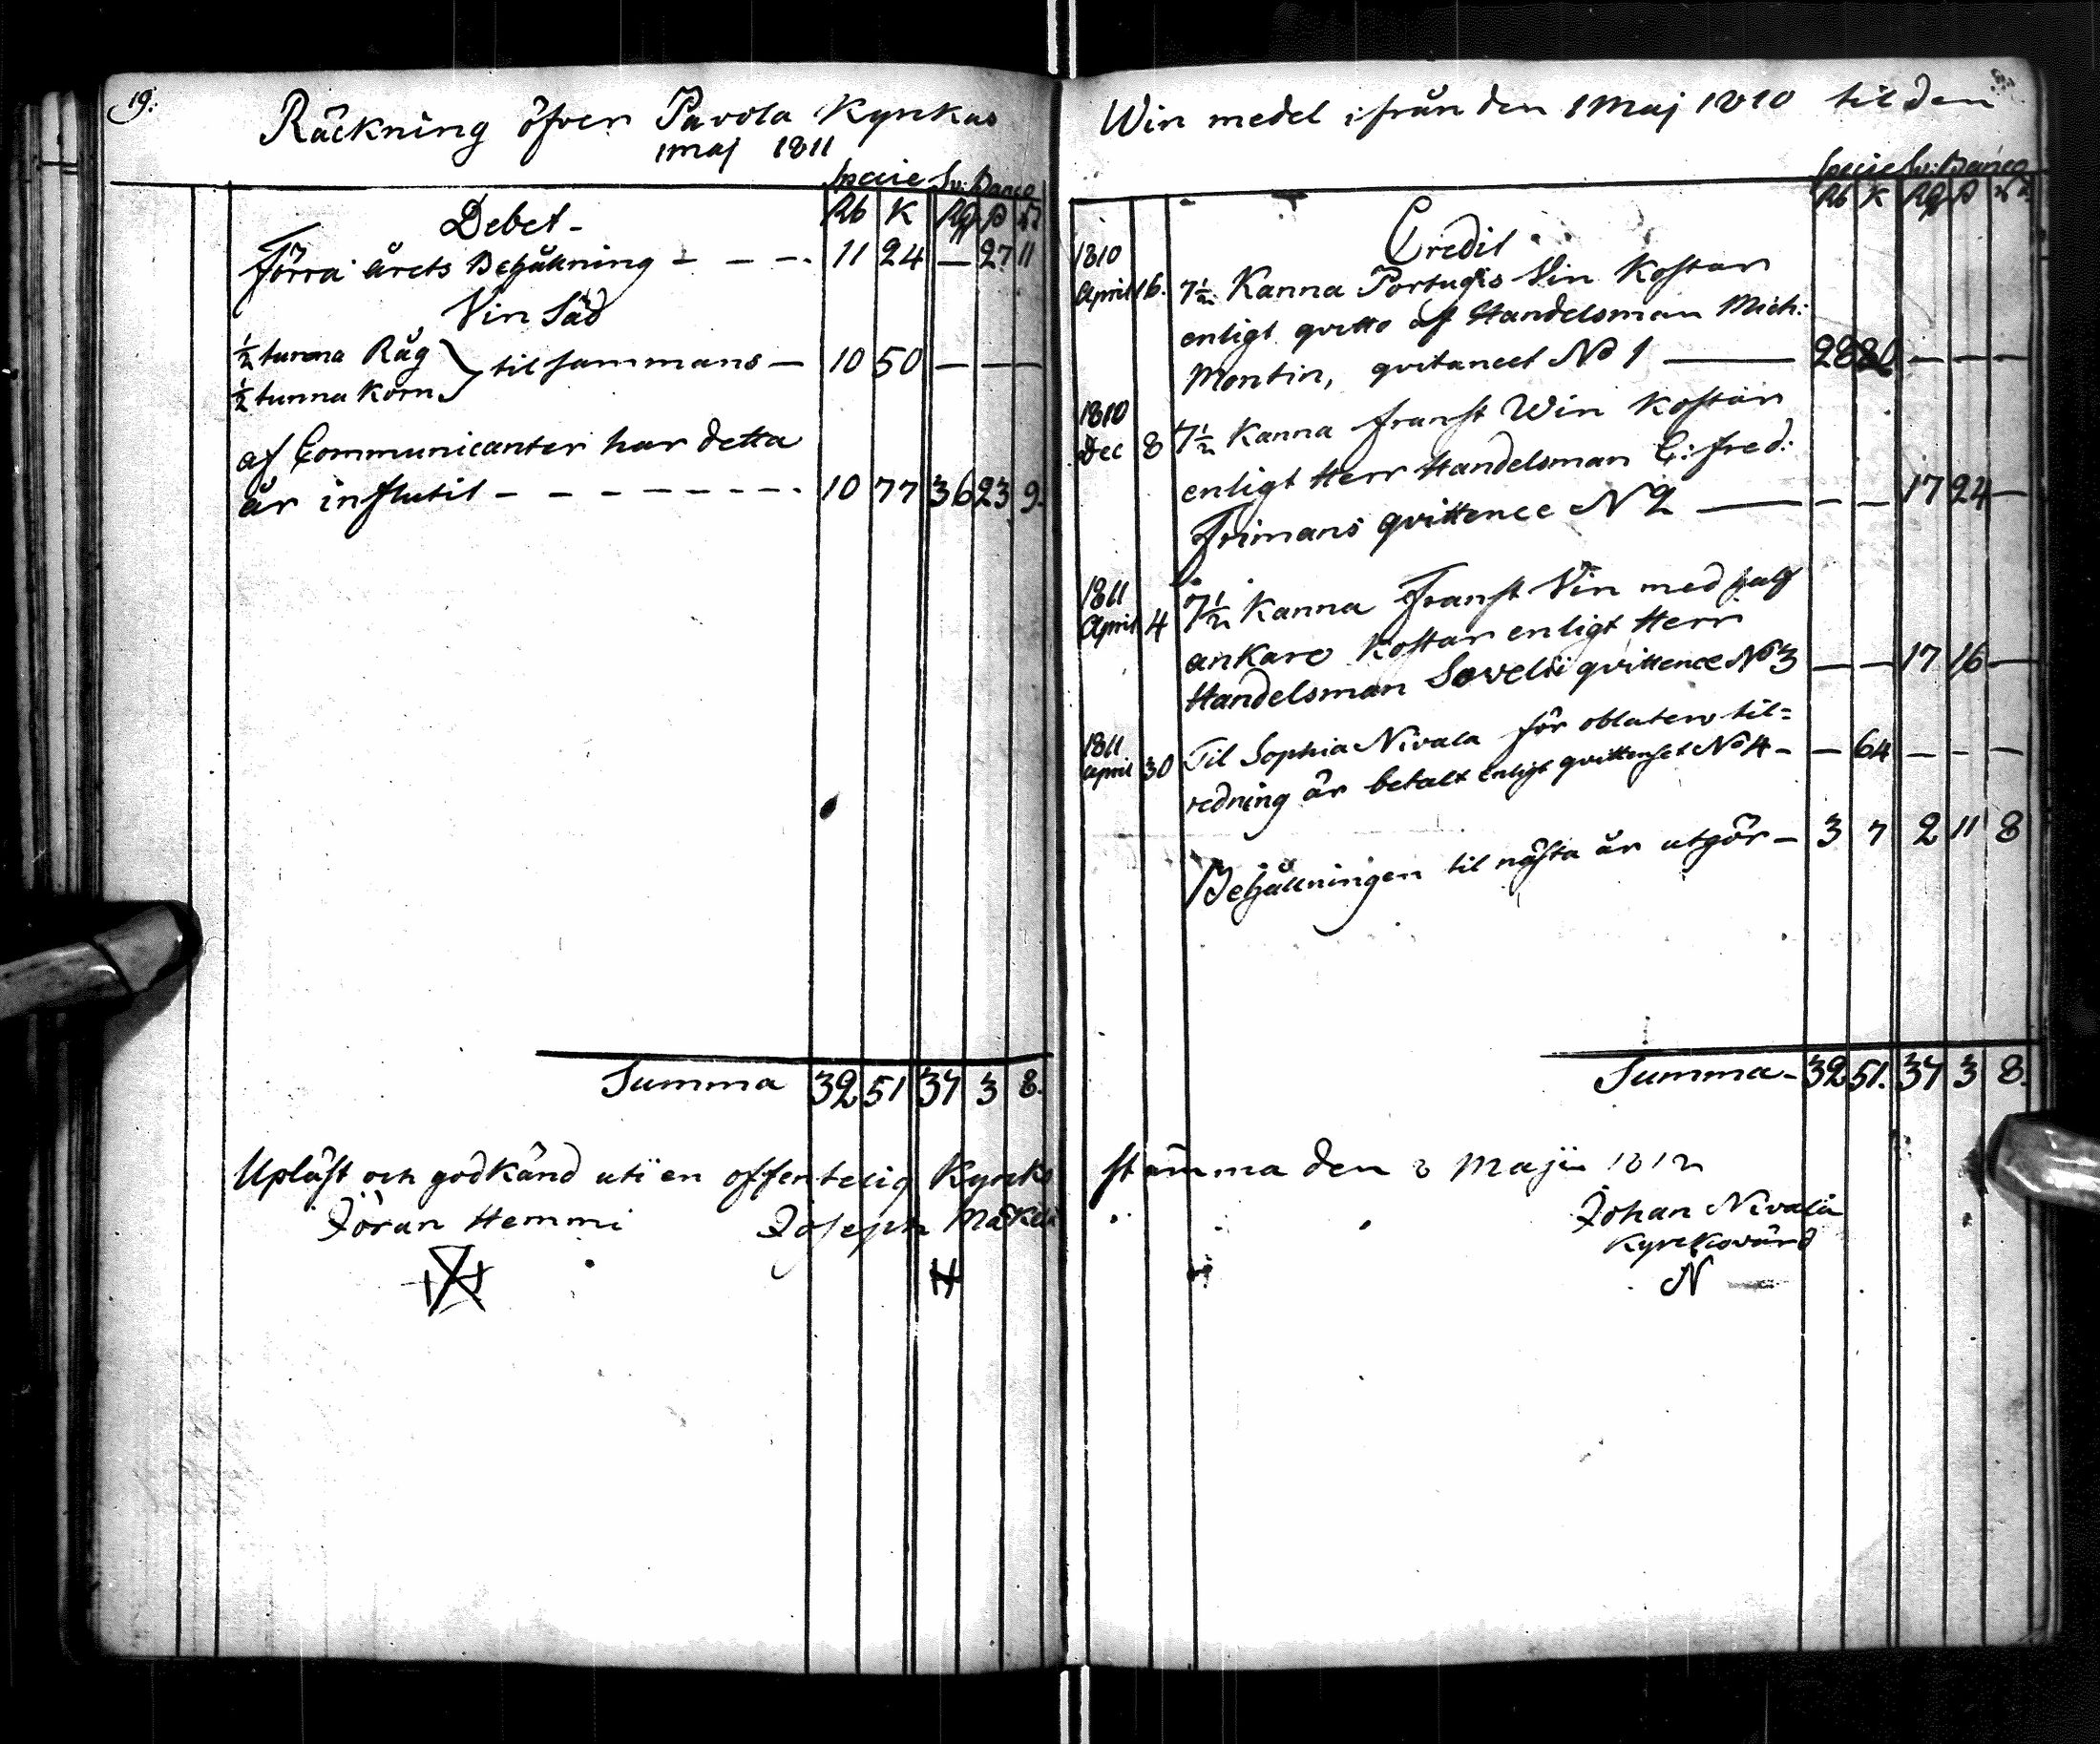 19.
Räckning öfver Pavola Kyrkas
1 maj 1811
Specie Sv: Banco
Rb K Rd ß rr
Debet -
Förra årets Behållning - - - 11 24 — 27 11
Vin Säd
½ tunna Råg
½ tunna Korn } til sammans — 10 50 — — —
af Communicanter har detta
år influtit - - - - - - - - 10 77 36 23 9.
Summa 32 51 37 3 8.
Upläst och godkänd uti en offentelig Kyrko
Jöran Hemmi Joseph Mäkelä
Win medel ifrån den 1 Maj 1810 til den
Specie Sv: Banco
Rb K Rd ß rr
Credit
1810
April 16. 7½ Kanna Portugis Vin Kostar
enligt qvitto af Handelsman Mich:
Montin, qvitancet No 1 — 28 80 — — —
1810
Dec 8 7½ Kanna franst Win Kostar
enligt Herr Handelsman C: fred:
Frimans qvittence N 2 — — — 17 24 —
1811
April 4 7½ Kanna Franst Vin med half
ankare Kostar enligt Herr
Handelsman Sovelii qvittence No 3 — — 17 16 —
1811
April 30 Til Sophia Nivala för oblaters til=
redning är betalt enligt qvittenset No 4 - — 64 — — —
Behållningen til nästa år utgör — 3 7 2 11 8
Summa - 32 51. 37 3 8.
stämma den 3 Maji 1812
Johan Nivala
Kyrckovärd
N